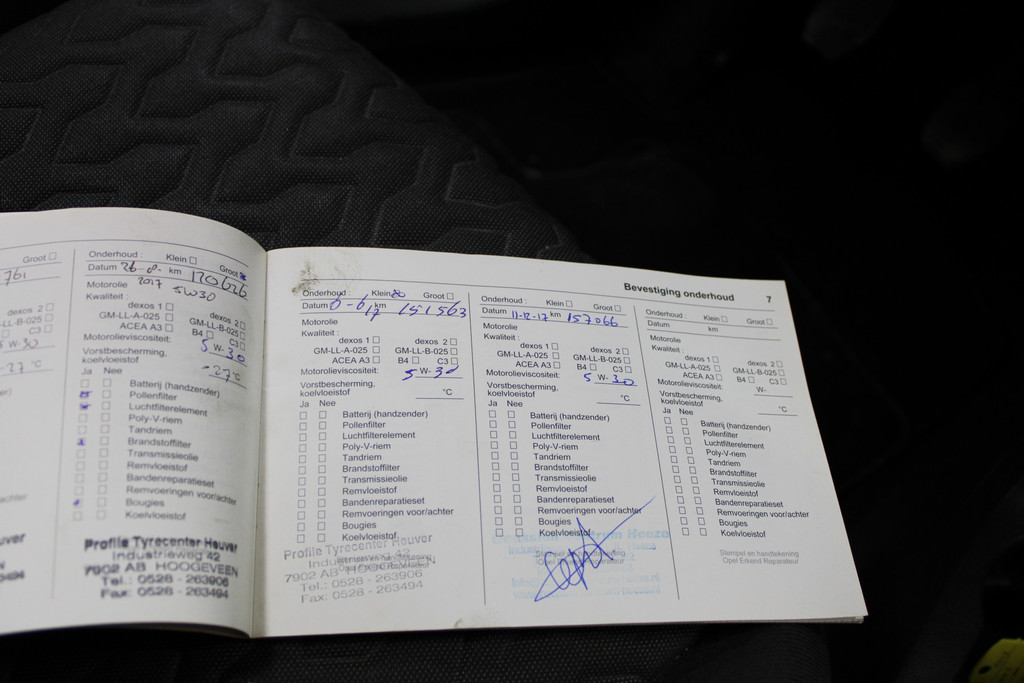 761
Groot
dexos 2
GM-LL-B-025
C3
W-30
-27 °C
Onderhoud : Klein Groot
Datum 26-8- km 170626
Motorolie 2017 5W30
Kwaliteit :
dexos 1 dexos 2
GM-LL-A-025 GM-LL-B-025
ACEA A3 B4 C3
Motorolieviscositeit: 5 W- 30
Vorstbescherming, koelvloeistof -27 °C
Ja Nee
Batterij (handzender)
Pollenfilter
Luchtfilterelement
Poly-V-riem
Tandriem
Brandstoffilter
Transmissieolie
Remvloeistof
Bandenreparatieset
Remvoeringen voor/achter
Bougies
Koelvloeistof
Profile Tyrecenter Heuver
Industrieweg 42
7902 AB HOOGEVEEN
Tel.: 0528 - 263906
Fax: 0528 - 263494
Bevestiging onderhoud 7
Onderhoud : Klein Groot
Datum km 151563
Motorolie
Kwaliteit :
dexos 1 dexos 2
GM-LL-A-025 GM-LL-B-025
ACEA A3 B4 C3
Motorolieviscositeit: 5 W- 30
Vorstbescherming,
koelvloeistof °C
Ja Nee
Batterij (handzender)
Pollenfilter
Luchtfilterelement
Poly-V-riem
Tandriem
Brandstoffilter
Transmissieolie
Remvloeistof
Bandenreparatieset
Remvoeringen voor/achter
Bougies
Koelvloeistof
Profile Tyrecenter Heuver
Industrieweg 42
7902 AB
Tel.: 0528 - 263906
Fax: 0528 - 263494
Onderhoud : Klein Groot
Datum 11-12-17 km 157066
Motorolie
Kwaliteit :
dexos 1 dexos 2
GM-LL-A-025 GM-LL-B-025
ACEA A3 B4 C3
Motorolieviscositeit: 5 W- 30
Vorstbescherming,
koelvloeistof °C
Ja Nee
Batterij (handzender)
Pollenfilter
Luchtfilterelement
Poly-V-riem
Tandriem
Brandstoffilter
Transmissieolie
Remvloeistof
Bandenreparatieset
Remvoeringen voor/achter
Bougies
Koelvloeistof
Heeze
Onderhoud : Klein Groot
Datum km
Motorolie
Kwaliteit :
dexos 1 dexos 2
GM-LL-A-025 GM-LL-B-025
ACEA A3 B4 C3
Motorolieviscositeit: W-
Vorstbescherming,
koelvloeistof °C
Ja Nee
Batterij (handzender)
Pollenfilter
Luchtfilterelement
Poly-V-riem
Tandriem
Brandstoffilter
Transmissieolie
Remvloeistof
Bandenreparatieset
Remvoeringen voor/achter
Bougies
Koelvloeistof
Stempel en handtekening
Opel Erkend Reparateur